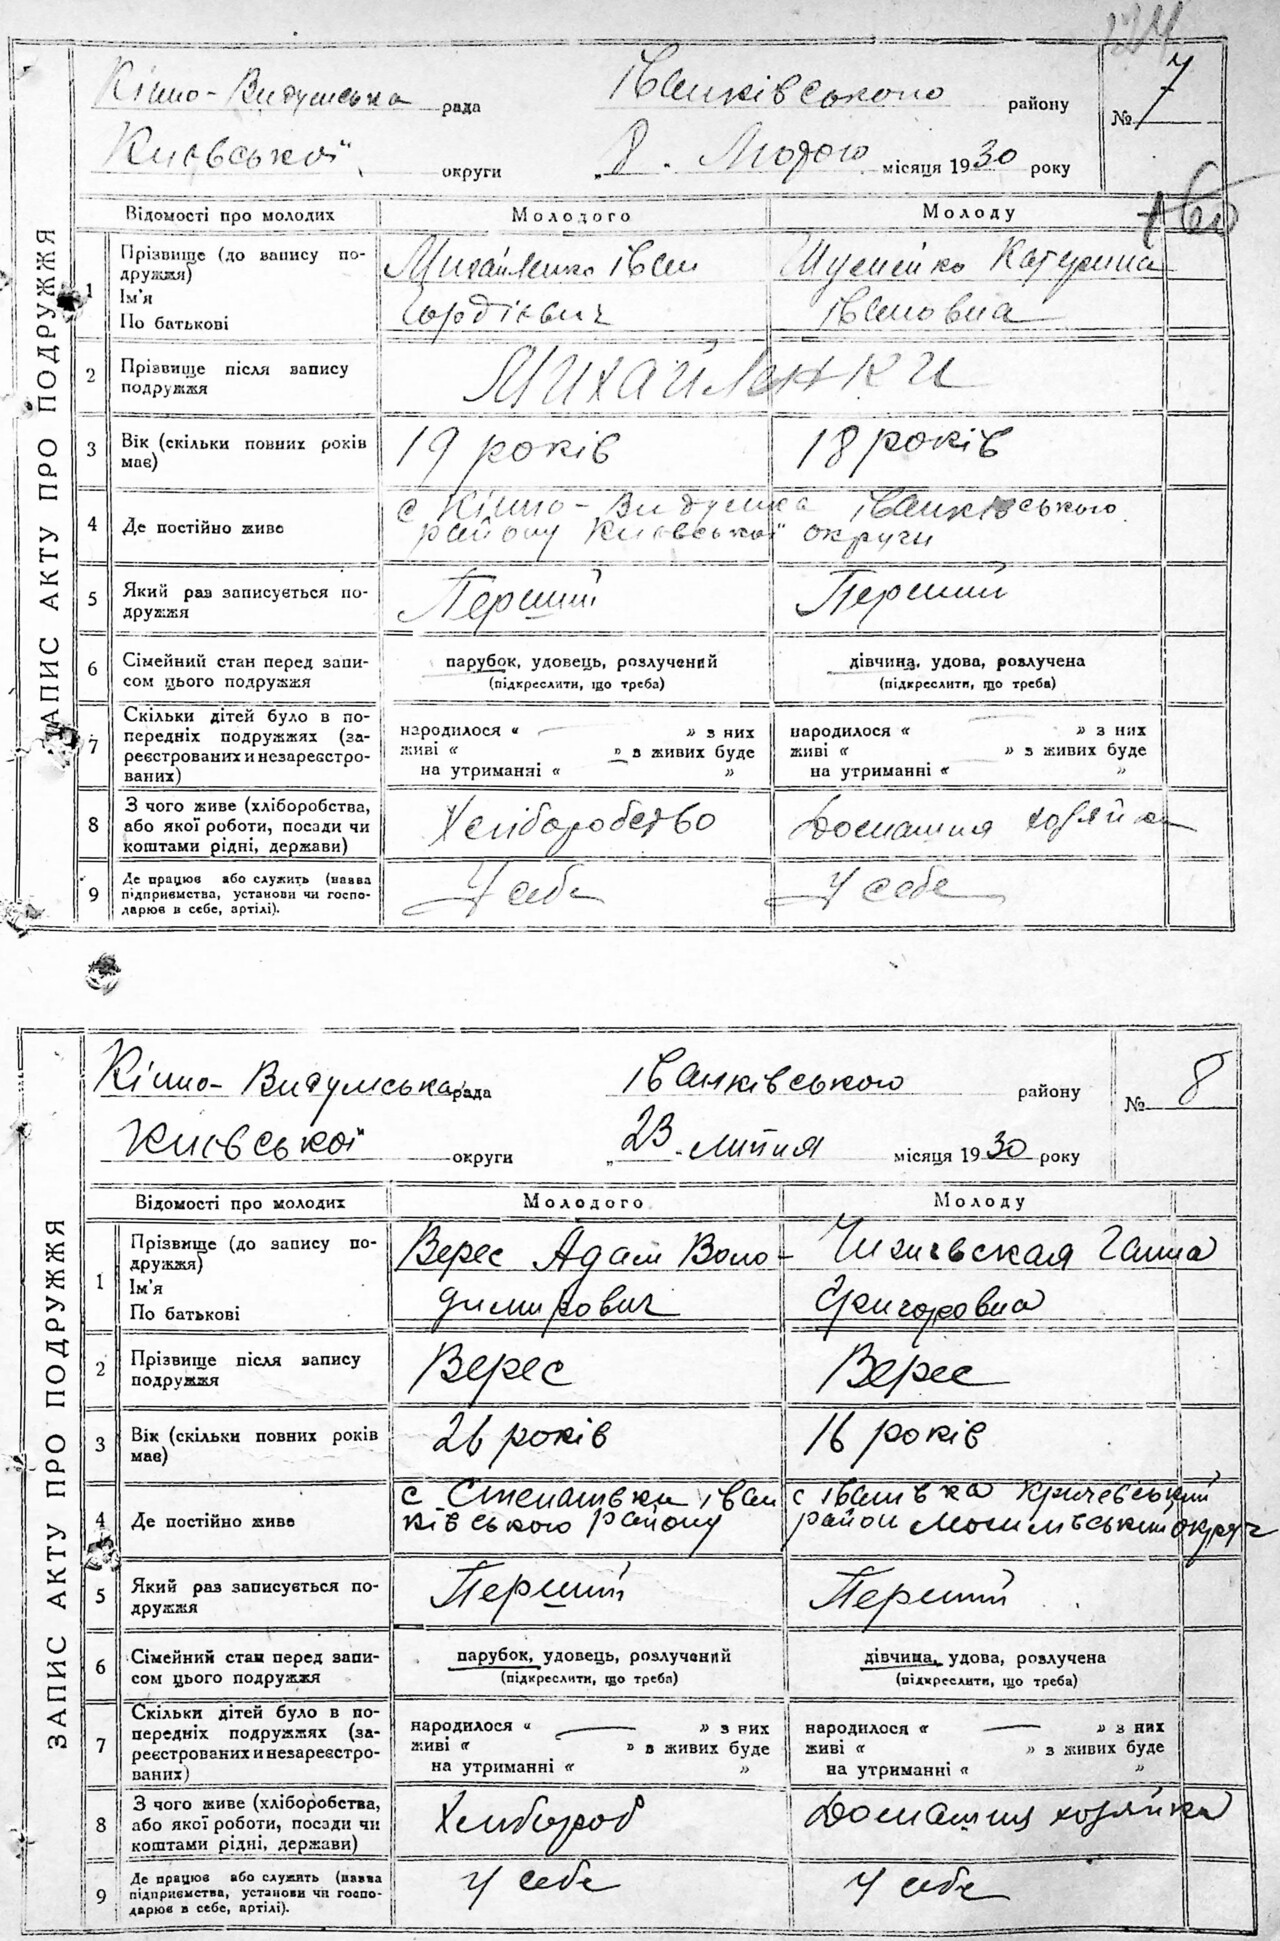 124
Кішно-Видумська рада Іванківського району № 7
Київської округи „8. Лютого місяця 1930 року
ЗАПИС АКТУ ПРО ПОДРУЖЖЯ
Відомості про молодих Молодого Молоду
1 Прізвище (до запису подружжя) Михайленко Іван Шуменко Катерина
Ім'я
По батькові Гордієвич Івановна
2 Прізвище після запису подружжя МИХАЙЛЕНКИ
3 Вік (скільки повних років має) 19 років 18 років
4 Де постійно живе с Кішно-Видумка Іванківського
району Київської округи
5 Який раз записується подружжя Перший Перший
6 Сімейний стан перед записом цього подружжя парубок, удовець, розлучений дівчина, удова, розлучена
(підкреслити, що треба) (підкреслити, що треба)
7 Скільки дітей було в попередніх подружжях (зареєстрованих и незареєстрованих)
народилося « — » з них народилося « — » з них
живі « » в живих буде живі « » з живих буде
на утриманні « » на утриманні « »
8 З чого живе (хліборобства, або якої роботи, посади чи коштами рідні, держави) Хеліборобство Домашня хозяйка
9 Де працює або служить (назва підприємства, установи чи господарює в себе, артілі). У себе У себе
Кішно-Видумська рада Іванківського району № 8
Київської округи „23 липня місяця 1930 року
ЗАПИС АКТУ ПРО ПОДРУЖЖЯ
Відомості про молодих Молодого Молоду
1 Прізвище (до запису подружжя) Верес Адам Воло- Чижевская Ганна
Ім'я
По батькові димирович Григоровна
2 Прізвище після запису подружжя Верес Верес
3 Вік (скільки повних років має) 26 років 16 років
4 Де постійно живе с Степанівка Іван с Іванівка Кричевський
ківського району район Могилівський округ
5 Який раз записується подружжя Перший Перший
6 Сімейний стан перед записом цього подружжя парубок, удовець, розлучений дівчина, удова, розлучена
(підкреслити, що треба) (підкреслити, що треба)
7 Скільки дітей було в попередніх подружжях (зареєстрованих и незареєстрованих)
народилося « — » з них народилося « — » з них
живі « » в живих буде живі « » з живих буде
на утриманні « » на утриманні « »
8 З чого живе (хліборобства, або якої роботи, посади чи коштами рідні, держави) Хлібороб Домашня хозяйка
9 Де працює або служить (назва підприємства, установи чи господарює в себе, артілі). У себе У себе